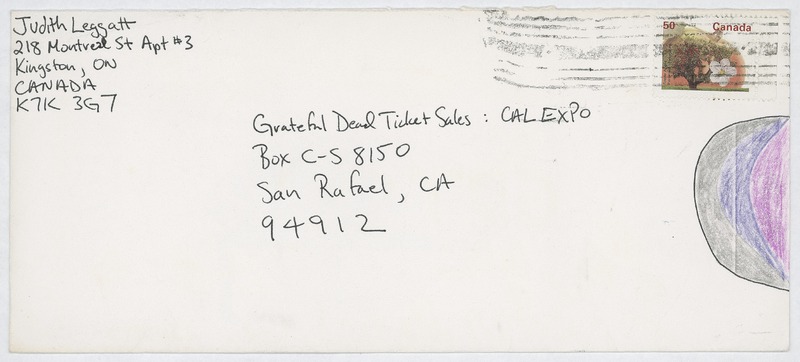 Judith Leggatt
218 Montreal St Apt #3
Kingston, ON
CANADA
K7K 3G7
50 Canada
Grateful Dead Ticket Sales : CAL EXPO
Box C-S 8150
San Rafael, CA
94912